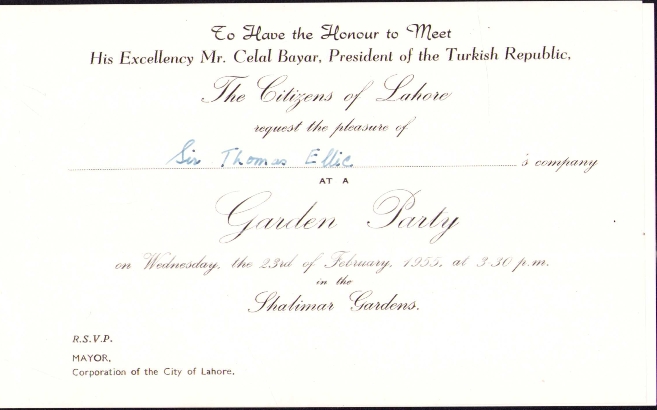 To Have the Honour to Meet
His Excellency Mr. Celal Bayar, President of the Turkish Republic,
The Citizens of Lahore
request the pleasure of
Sir Thomas Ellis 's company
AT A
Garden Party
on Wednesday, the 23rd of February, 1955, at 3-30 p.m.
in the
Shalimar Gardens.
R.S.V.P.
MAYOR,
Corporation of the City of Lahore.